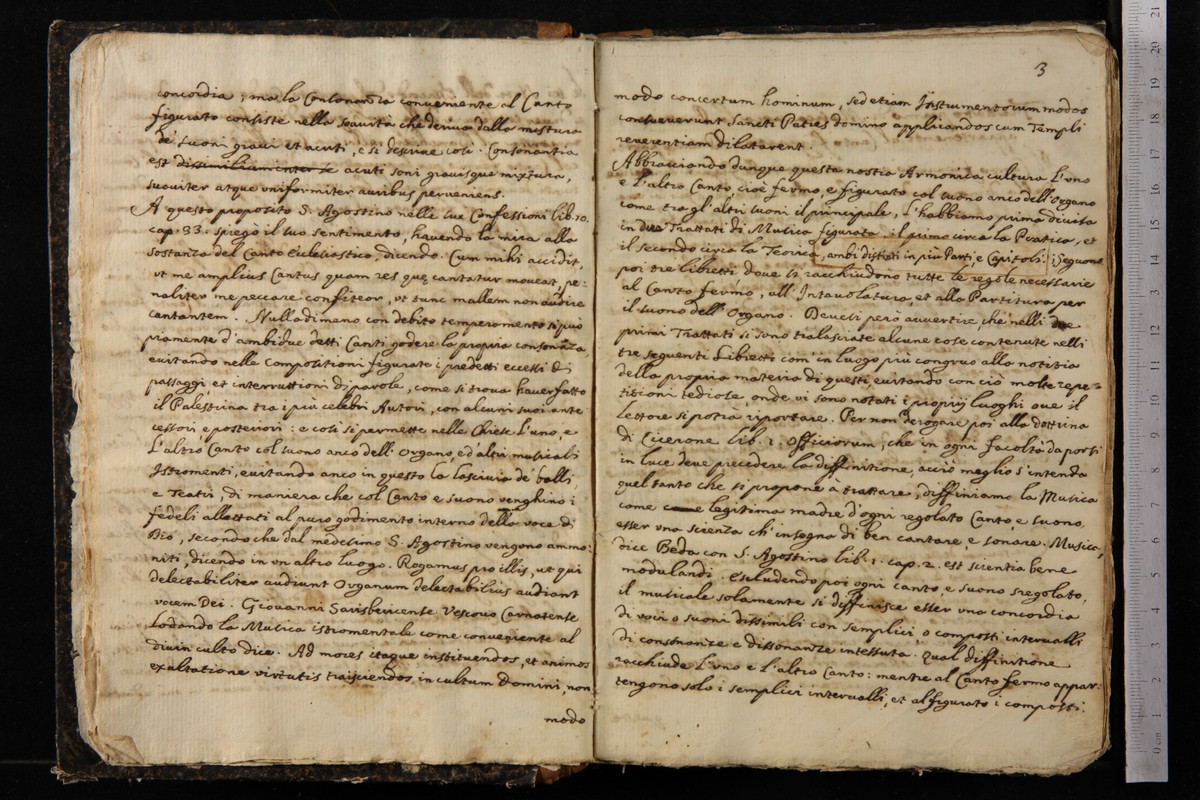 concordia, ma la Consonanza conveniente al Canto
figurato consiste nella soavità che deriva dalla mistura
de suoni gravi et acuti, e si descrive così. Consonantia
est dissimilium inter se acuti soni gravisque mixtura,
suaviter atque uniformiter auribus perveniens.
A questo proposito S. Agostino nelle sue Confessioni lib. 10.
cap. 33. spiegò il suo sentimento, havendo la mira alla
sostanza del Canto Ecclesiastico, dicendo. Cum mihi accidit,
ut me amplius Cantus quam res quę cantatur moveat, pe-
naliter me peccare confiteor, ut tunc mallem non audire
cantantem. Nulladimeno con debito temperamento si può
piamente d'ambidue detti Canti godere la propria consonãza
evitando nelle Compositioni figurate i predetti eccessi di
passaggi et interruttioni di parole, come si trova haver fatto
il Palestrina tra i più celebri Autori, con alcuni suoi ante
cessori e posteriori: e così si permette nelle Chiese l'uno, e
l'altro Canto col suono anco dell'Organo, ed altri musicali
Istromenti, evitando anco in questo la lascivia de' balli,
e Teatri, di maniera che col Canto e suono venghino i
fedeli allettati al puro godimento interno della voce di
Dio, secondo che dal medesimo S. Agostino vengono ammo-
niti, dicendo in un altro luogo. Rogamus pro illis, ut qui
delectabiliter audiunt Organum delectabilius audiant
vocem Dei. Giovanni Sarisberiense Vescovo Carnotense
lodando la Musica istromentale come conveniente al
divin culto dice. Ad mores itaque instituendos, et animos
exultatione virtutis traijciendos in cultum Domini, non
modo
3
modo concentum hominum, sed etiam Instrumentorum modos
consueverunt Sancti Patres domino applicandos cum Templi
reverentiam dilatarent.
Abbracciando dunque questa nostra Armonica cultura l'uno
e l'altro Canto, cioè fermo, e figurato col suono anco dell'Organo
come tra gl'altri suoni il principale, l'habbiamo prima divisa
in due Trattati di Musica figurata il primo circa la Pratica, et
il secondo circa la Teorica, ambi distesi in più Parti, e Capitoli. Seguono
poi tre libretti dove si racchiudono tutte le regole necessarie
al Canto fermo, all'Intavolatura, et alla Partitura per
il suono dell'Organo. Devesi però avvertire che nelli due
primi Trattati si sono tralasciate alcune cose contenute nelli
tre seguenti Libretti com in luogo più congruo alla notitia
della propria materia di questi, evitando con ciò molte repe-
titioni tediose, onde vi sono notati i proprij luoghi ove il
lettore si potrà riportare. Per non derogare poi alla dottrina
di Cicerone lib. 1. Officiorum, che in ogni facoltà da porsi
in luce deve precedere la diffinitione, acciò meglio s'intenda
quel tanto che si propone à trattare, diffiniamo la Musica
come legitima madre d'ogni regolato Canto, e suono,
esser una scienza ch'insegna di ben cantare, e sonare. Musica,
dice Beda con S. Agostino lib. 1. cap. 2. est scientia bene
modulandi. Escludendo poi ogni canto, e suono sregolato,
il musicale solamente si diffinisce esser una concordia
di voci o suoni dissimili con semplici o composti intervalli
di consonanze e dissonanze intessuta. Qual diffinitione
racchiude l'uno e l'altro Canto: mentre al Canto fermo appar-
tengono solo i semplici intervalli, et al figurato i composti.